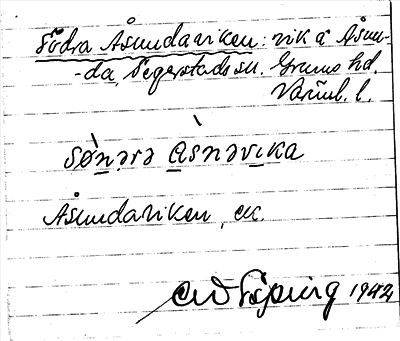 Södra Åsundaviken: vik å Åsun-
-da, Segerstads sn. Grums hd.
Värml. l.
sǿnərə ɑsnəvika
Åsundaviken, ek
1942